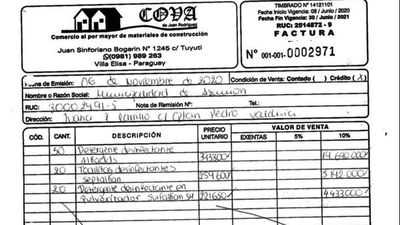 COVA
de Juan Rodríguez
Comercio al por mayor de materiales de construcción
Juan Sinforiano Bogarin N° 1245 c/ Tuyuti
(0981) 989 263
Villa Elisa - Paraguay
TIMBRADO N° 14121101
Fecha Inicio Vigencia: 08 / Junio / 2020
Fecha Fin Vigencia: 30 / Junio / 2021
RUC: 2514872 - 9
FACTURA
N° 001-001- 0002971
Fecha de Emisión: 06 de Noviembre de 2020 Condición de Venta: Contado ( ) Crédito (X)
Nombre o Razón Social: Municipalidad de Asunción
RUC: Nota de Remisión N°: Tel.:
Dirección: c/ Capitan Pedro
CÓD. CANT. DESCRIPCIÓN PRECIO UNITARIO VALOR DE VENTA
EXENTAS 5% 10%
50 Detergente desinfectante
20 Toallitas desinfectantes
20 Detergente desinfectante en
Pulverizador 221650 4433000